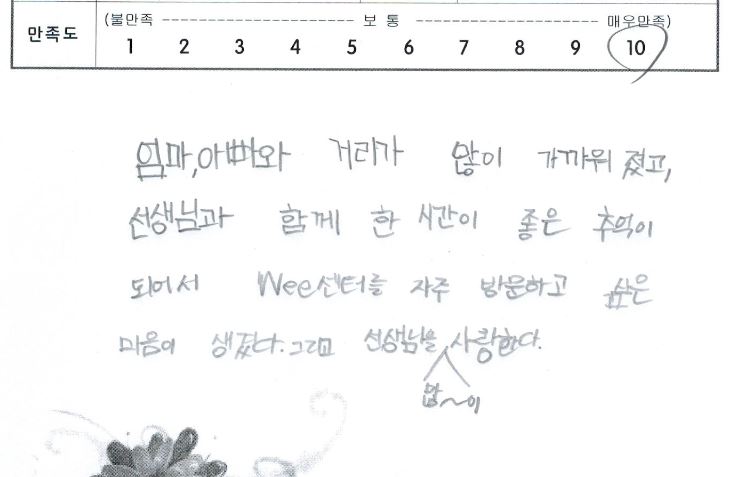 (불만족 ---------- 보 통 ---------- 매우만족)
만족도 1 2 3 4 5 6 7 8 9 10
엄마,아빠와 거리가 많이 가까워 졌고,
선생님과 함께 한 시간이 좋은 추억이
되어서 Wee센터를 자주 방문하고 싶은
마음이 생겼다. 그리고 선생님을 사랑한다.
많~이